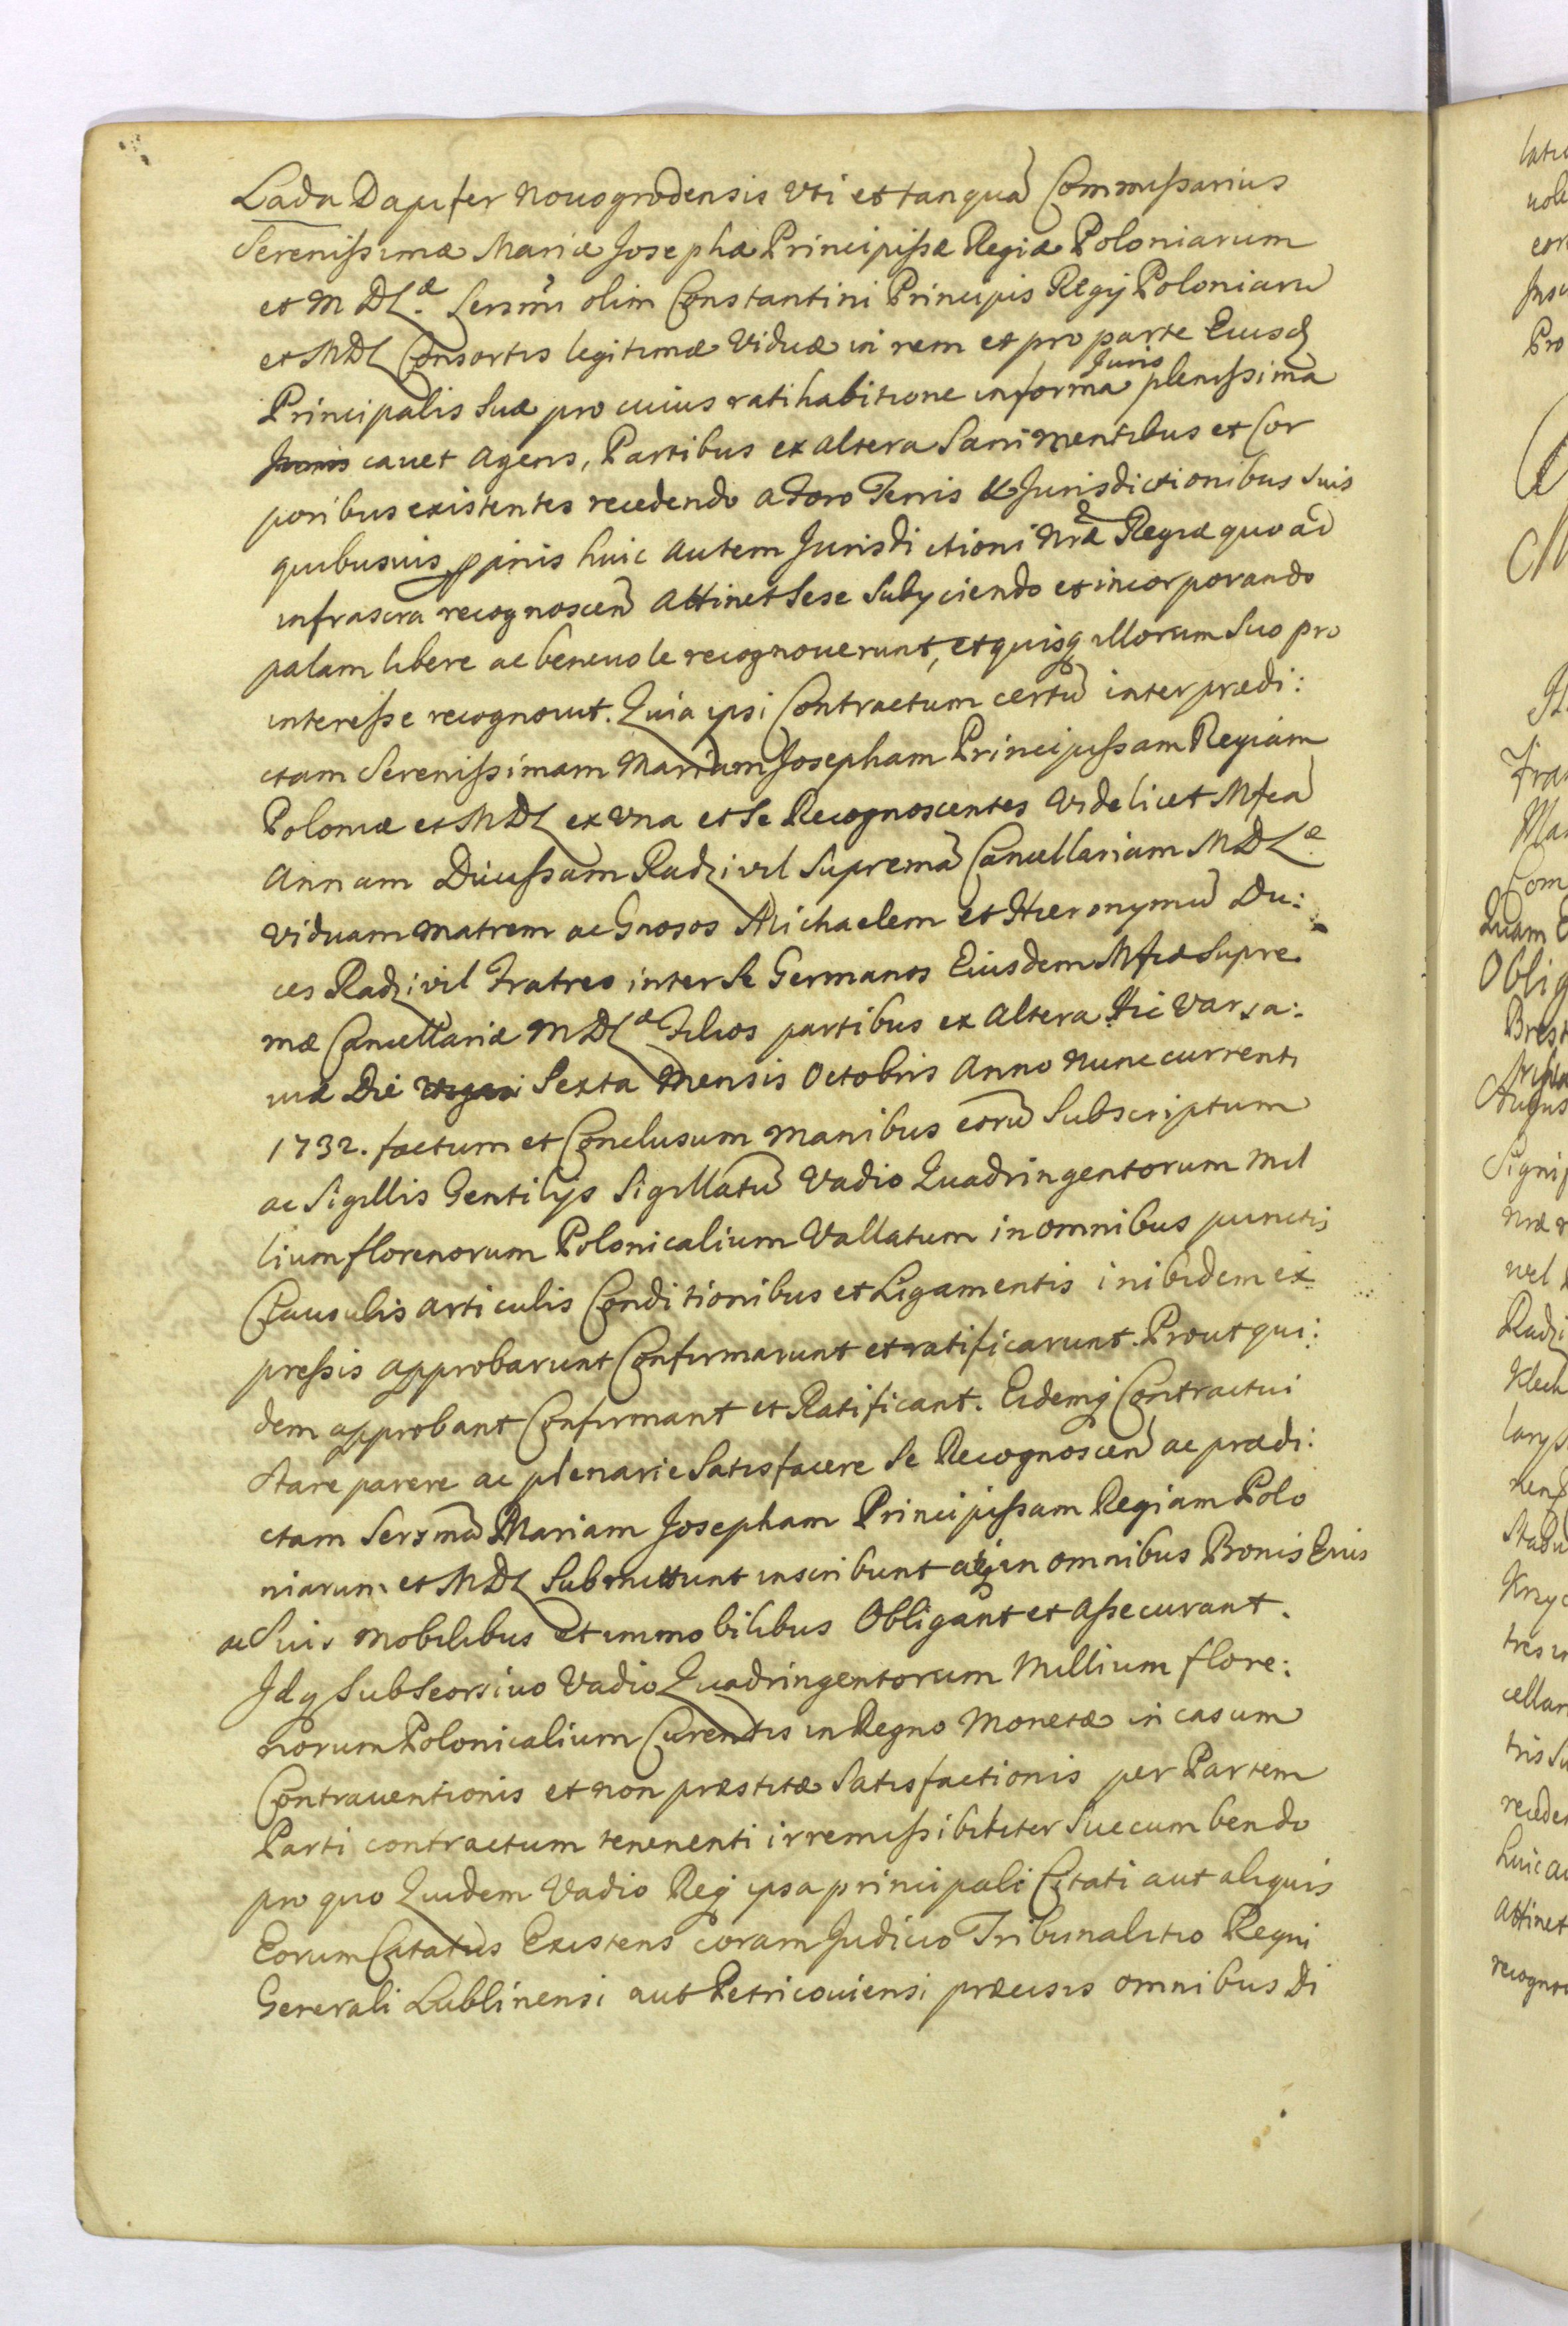 Lada Dapifer Novogrodensis Uti et tanquã Commissarius
Serenissimæ Mariæ Josephæ Principissæ Regiæ Poloniarum
et M D Læ. Sersmi olim Constantini Principis Regij Poloniarũ
et MDL Consortis legitimæ Viduæ in rem et pro parte Eiusd
Principalis Suæ pro cuius ratihabitione in forma Juris plenissima
cavet agens, Partibus ex altera Sani mentibus et Cor
poribus existentes recedendo a Foro Terris & Jurisdictionibus Suis
quibusvis ppriis huic autem Jurisdictioni Nrã Regiæ quo ad
infrascra recognoscen attinet Sese Subyciendo et incorporando
palam libere ac benevole recognoverunt, et quisq illorum Suo pro
interesse recognovit. Quia ipsi Contractum certũ inter prædi:
ctam Serenissimam Mariam Josepham Principissam Regiam
Poloniæ et MDL ex Una et Se Recognoscentes Videlicet Mfcã
Annam Ducissam Radzivil Supremã Cancellariam MDLæ.
Viduam Matrem ac Gnosos Michaelem et Hieronymũ Du:
ces Radzivil Fratres inter Se Germanos Eiusdem Mfcæ Supre
mæ Cancellariæ M D Læ Filios partibus ex altera Hic Varsa:
viæ Die Sexta Mensis Octobris Anno Nunc currenti
1732. factum et Conclusum manibus eorũ Subscriptum
ac Sigillis Gentilijs Sigillatũ Vadio Quadringentorum Mil
lium florenorum Polonicalium Vallatum in omnibus punctis
Clausulis articulis Conditionibus et Ligamentis inibidem ex
pressis approbarunt Confirmarunt et ratificarunt. Prout qui:
dem approbant Confirmant et Ratificant. Eidemq Contractui
Stare parere ac plenarie Satisfacere Se Recognoscen ac prædi:
ctam Sersmã Mariam Josepham Principissam Regiam Polo
niarum et MDL Submittunt inscribunt atq in omnibus Bonis Eius
ac Suis mobilibus et immobilibus Obligant et assecurant.
Idq Sub Seorsivo Vadio Quadringentorum Millium flore:
norum Polonicalium Curentis in Regno Monetæ in casum
Contraventionis et non præstitæ Satisfactionis per Partem
Parti contractum tenenenti irremissibiliter Succumbendo
pro quo Quidem Vadio Req ipsa principali Citati aut aliquis
Eorum Citatus Existens coram Judicio Tribunalitio Regni
Generali Lublinensi aut Petricoviensi præcisis omnibus Di